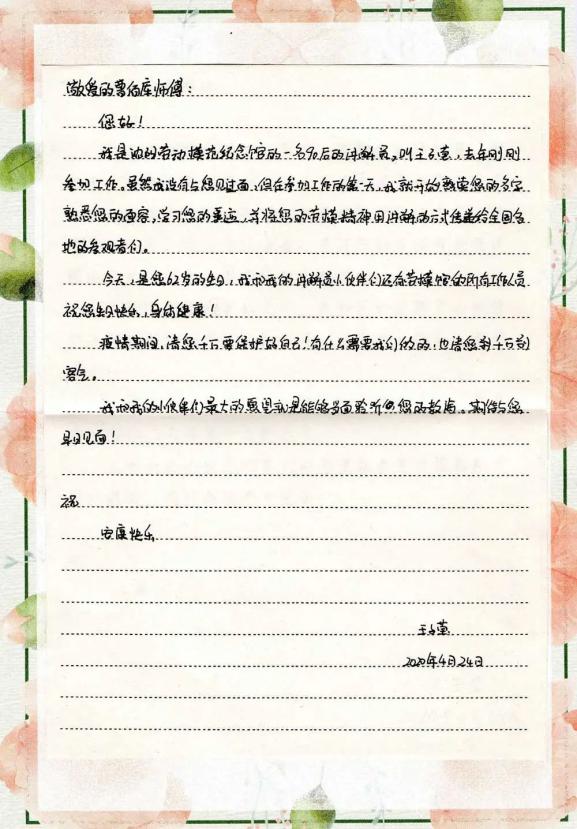 敬爱的曹佰库师傅：
您好！
我是沈阳劳动模范纪念馆的一名90后的讲解员，叫王子萱，去年刚刚
参加工作。虽然我没有与您见过面，但在参加工作的第一天，我就开始熟读您的名字
熟悉您的面容，学习您的事迹，并将您的劳模精神用讲解的方式传递给全国各
地的参观者们。
今天，是您62岁的生日，我和我的讲解道小伙伴们还有劳模馆的所有工作人员
祝您生日快乐，身体健康！
疫情期间，请您千万要保护好自己！有什么需要我们的的，也请您别千万别
客气。
我和我的小伙伴们最大的愿望就是能够当面聆听您的教诲。期待与您
早日见面！
祝
安康快乐
王子萱
2020年4月24日